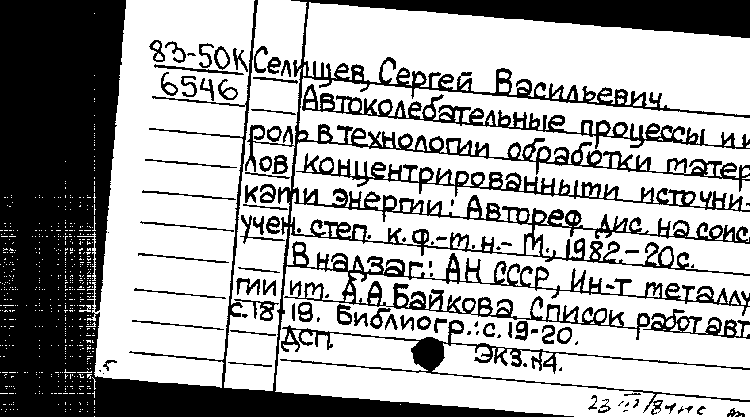 83-50К Селищев, Сергей Васильевич.
6546 Автоколебательные процессы и и
роль в технологии обработки матер
лов концентрированными источни-
ками энергии: Автореф дис. на соис
учен. степ. к. ф.-м. н. - М., 1982. - 20с.
В надзаг.: АН СССР, Ин-т металлу
гии им. А.А. Байкова Список работ авт.
с.18-19. Библиогр.: с. 19-20.
ДСП. Экз. №4.